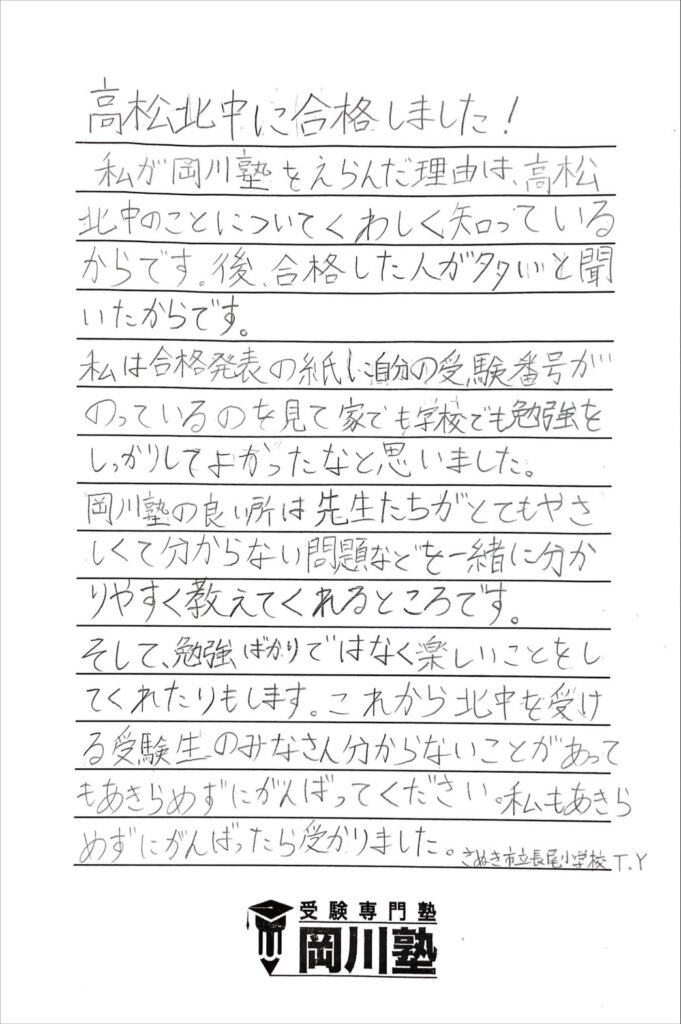 高松北中に合格しました！
私が岡川塾をえらんだ理由は、高松
北中のことについてくわしく知っている
からです。後、合格した人がタクいと聞
いたからです。
私は合格発表の紙に自分の受験番号が
のっているのを見て家でも学校でも勉強を
しっかりしてよかったなと思いました。
岡川塾の良い所は先生たちがとてもやさ
しくて分からない問題などを一緒に分か
りやすく教えてくれるところです。
そして、勉強ばかりではなく楽しいことをし
てくれたりもします。これから北中を受け
る受験生のみなさん分からないことがあって
もあきらめずにがんばってください。私もあきら
めずにがんばったら受かりました。さぬき市立長尾小学校 T.Y
受験専門塾
岡川塾